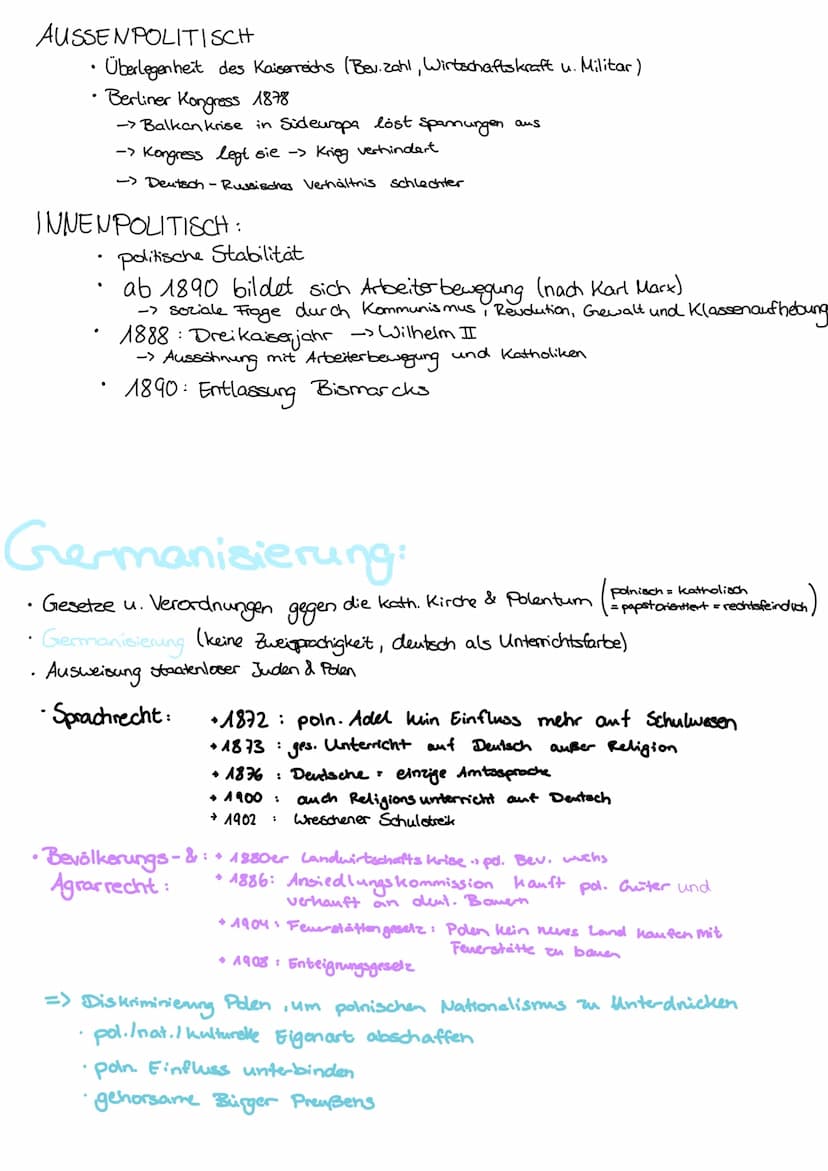 AUSSENPOLITISCH
• Überlegenheit des Kaiserreichs (Bev.zahl, Wirtschaftskraft u. Militär)
• Berliner Kongress 1878
-> Balkankrise in Südeuropa löst Spannungen aus
-> Kongress legt sie -> Krieg verhindert
-> Deutsch-Russisches Verhältnis schlechter
INNENPOLITISCH:
• politische Stabilität
• ab 1890 bildet sich Arbeiterbewegung (nach Karl Marx)
-> soziale Frage durch Kommunismus, Revolution, Gewalt und Klassenaufhebung
• 1888: Dreikaiserjahr -> Wilhelm II
-> Aussöhnung mit Arbeiterbewegung und Katholiken
• 1890: Entlassung Bismarcks
Germanisierung:
• Gesetze u. Verordnungen gegen die kath. Kirche & Polentum (polnisch = katholisch
= papstorientiert = rechtsfeindlich)
• Germanisierung (keine Zweisprachigkeit, deutsch als Unterrichtsfarbe)
• Ausweisung staatenloser Juden & Polen
• Sprachrecht: • 1872: poln. Adel kein Einfluss mehr auf Schulwesen
• 1873: ges. Unterricht auf Deutsch außer Religion
• 1876: Deutsche = einzige Amtssprache
• 1900: auch Religionsunterricht auf Deutsch
• 1902: Wreschener Schulstreik
• Bevölkerungs- & : • 1880er Landwirtschaftskrise -> pol. Bev. wuchs
Agrarrecht: • 1886: Ansiedlungskommission kauft pol. Güter und
verkauft an deut. Bauern
• 1904: Feuerstättengesetz: Polen kein neues Land kaufen mit
Feuerstätte zu bauen
• 1908: Enteignungsgesetz
=> Diskriminierung Polen, um polnischen Nationalismus zu unterdrücken
• pol./nat./kulturelle Eigenart abschaffen
• poln. Einfluss unterbinden
• gehorsame Bürger Preußens